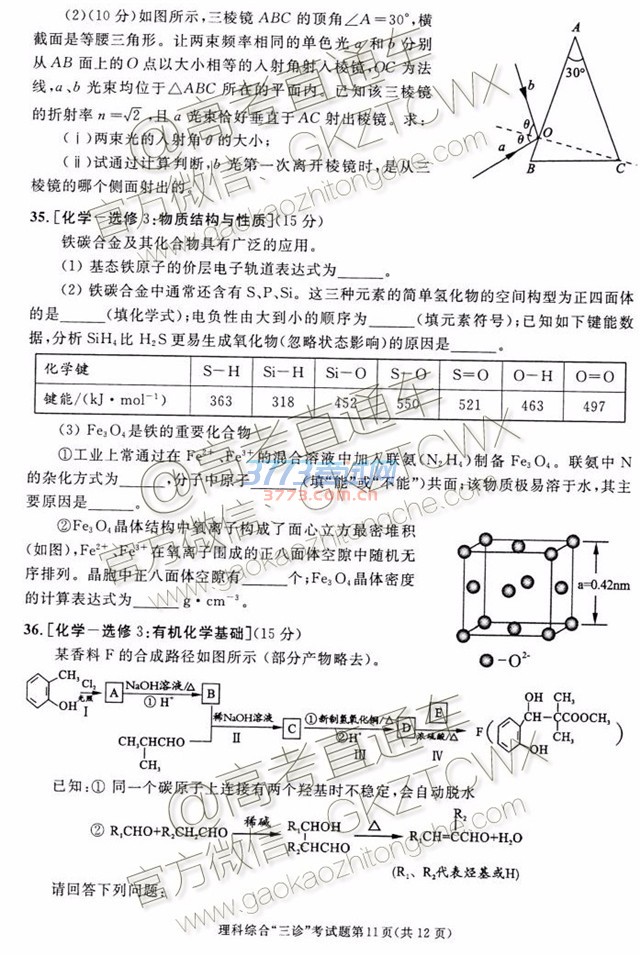 (2)(10分)如图所示,三棱镜ABC的顶角∠A=30°,横
截面是等腰三角形。让两束频率相同的单色光a和b分别
从AB面上的O点以大小相等的入射角射入棱镜,OC为法
线,a、b光束均位于△ABC所在的平面内。已知该三棱镜
的折射率n=√2,且a光束恰好垂直于AC射出棱镜。求:
(ⅰ)两束光的入射角θ的大小;
(ⅱ)试通过计算判断,b光第一次离开棱镜时,是从三
棱镜的哪个侧面射出的。
A
30°
b
θ
O
θ
a
B
C
35.[化学-选修3:物质结构与性质](15分)
铁碳合金及其化合物具有广泛的应用。
(1) 基态铁原子的价层电子轨道表达式为______。
(2) 铁碳合金中通常还含有S、P、Si。这三种元素的简单氢化物的空间构型为正四面体
的是______(填化学式);电负性由大到小的顺序为______(填元素符号);已知如下键能数
据,分析SiH₄比H₂S更易生成氧化物(忽略状态影响)的原因是______。
化学键 S-H Si-H Si-O S-O S=O O-H O=O
键能/(kJ·mol⁻¹) 363 318 452 550 521 463 497
(3) Fe₃O₄是铁的重要化合物
①工业上常通过在Fe²⁺、Fe³⁺的混合溶液中加入联氨(N₂H₄)制备Fe₃O₄。联氨中N
的杂化方式为______,分子中原子______(填“能”或“不能”)共面;该物质极易溶于水,其主
要原因是______。
②Fe₃O₄晶体结构中氧离子构成了面心立方最密堆积
(如图),Fe²⁺、Fe³⁺在氧离子围成的正八面体空隙中随机无
序排列。晶胞中正八面体空隙有______个;Fe₃O₄晶体密度
的计算表达式为______g·cm⁻³。
a=0.42nm
-O²⁻
36.[化学-选修3:有机化学基础](15分)
某香料F的合成路径如图所示(部分产物略去)。
CH₃ OH Cl₂ 光照 Ⅰ A NaOH溶液/△ ①H⁺ B
CH₃CHCHO CH₃
稀NaOH溶液 Ⅱ C ①新制氢氧化铜/△ ②H⁺ Ⅲ D E 浓硫酸/△ Ⅳ F
OH CH₃ CH-C-COOCH₃ CH₃ OH
已知:① 同一个碳原子上连接有两个羟基时不稳定,会自动脱水
② R₁CHO+R₂CH₂CHO 稀碱 R₁CHOH R₂CHCHO △ R₁CH=CCHO+H₂O R₂
(R₁、R₂代表烃基或H)
请回答下列问题:
理科综合“三诊”考试题第11页(共12页)
@高考直通车
官方微信:GKZTCWX
www.gaokaozhitongche.com
3773考试网
3773.com.cn